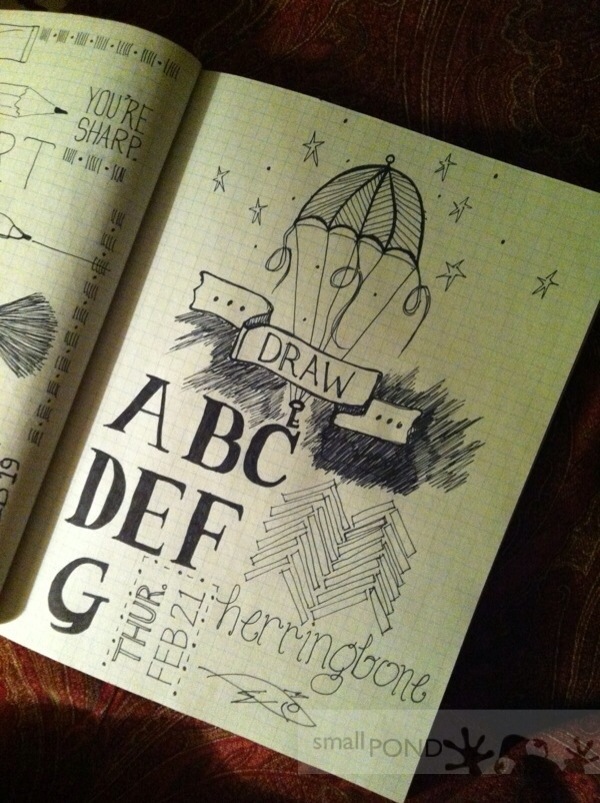 YOU'RE
SHARP.
RT
19
DRAW
ABC
DEF
G
THUR.
FEB 21
herringbone
small POND